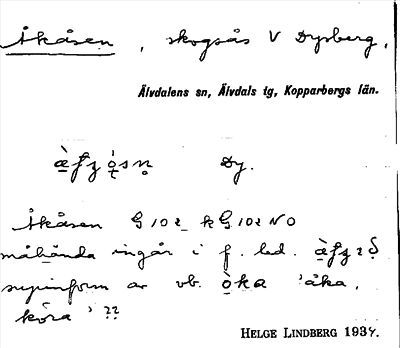 Åkåsen , skogsås V Dysberg,
Älvdalens sn, Älvdals tg, Kopparbergs län.
Dy.
Åkåsen G 102 k G 102 NO
måhända ingår i f. led.
supinform av vb. òka 'åka,
köra' ??
HELGE LINDBERG 1934.